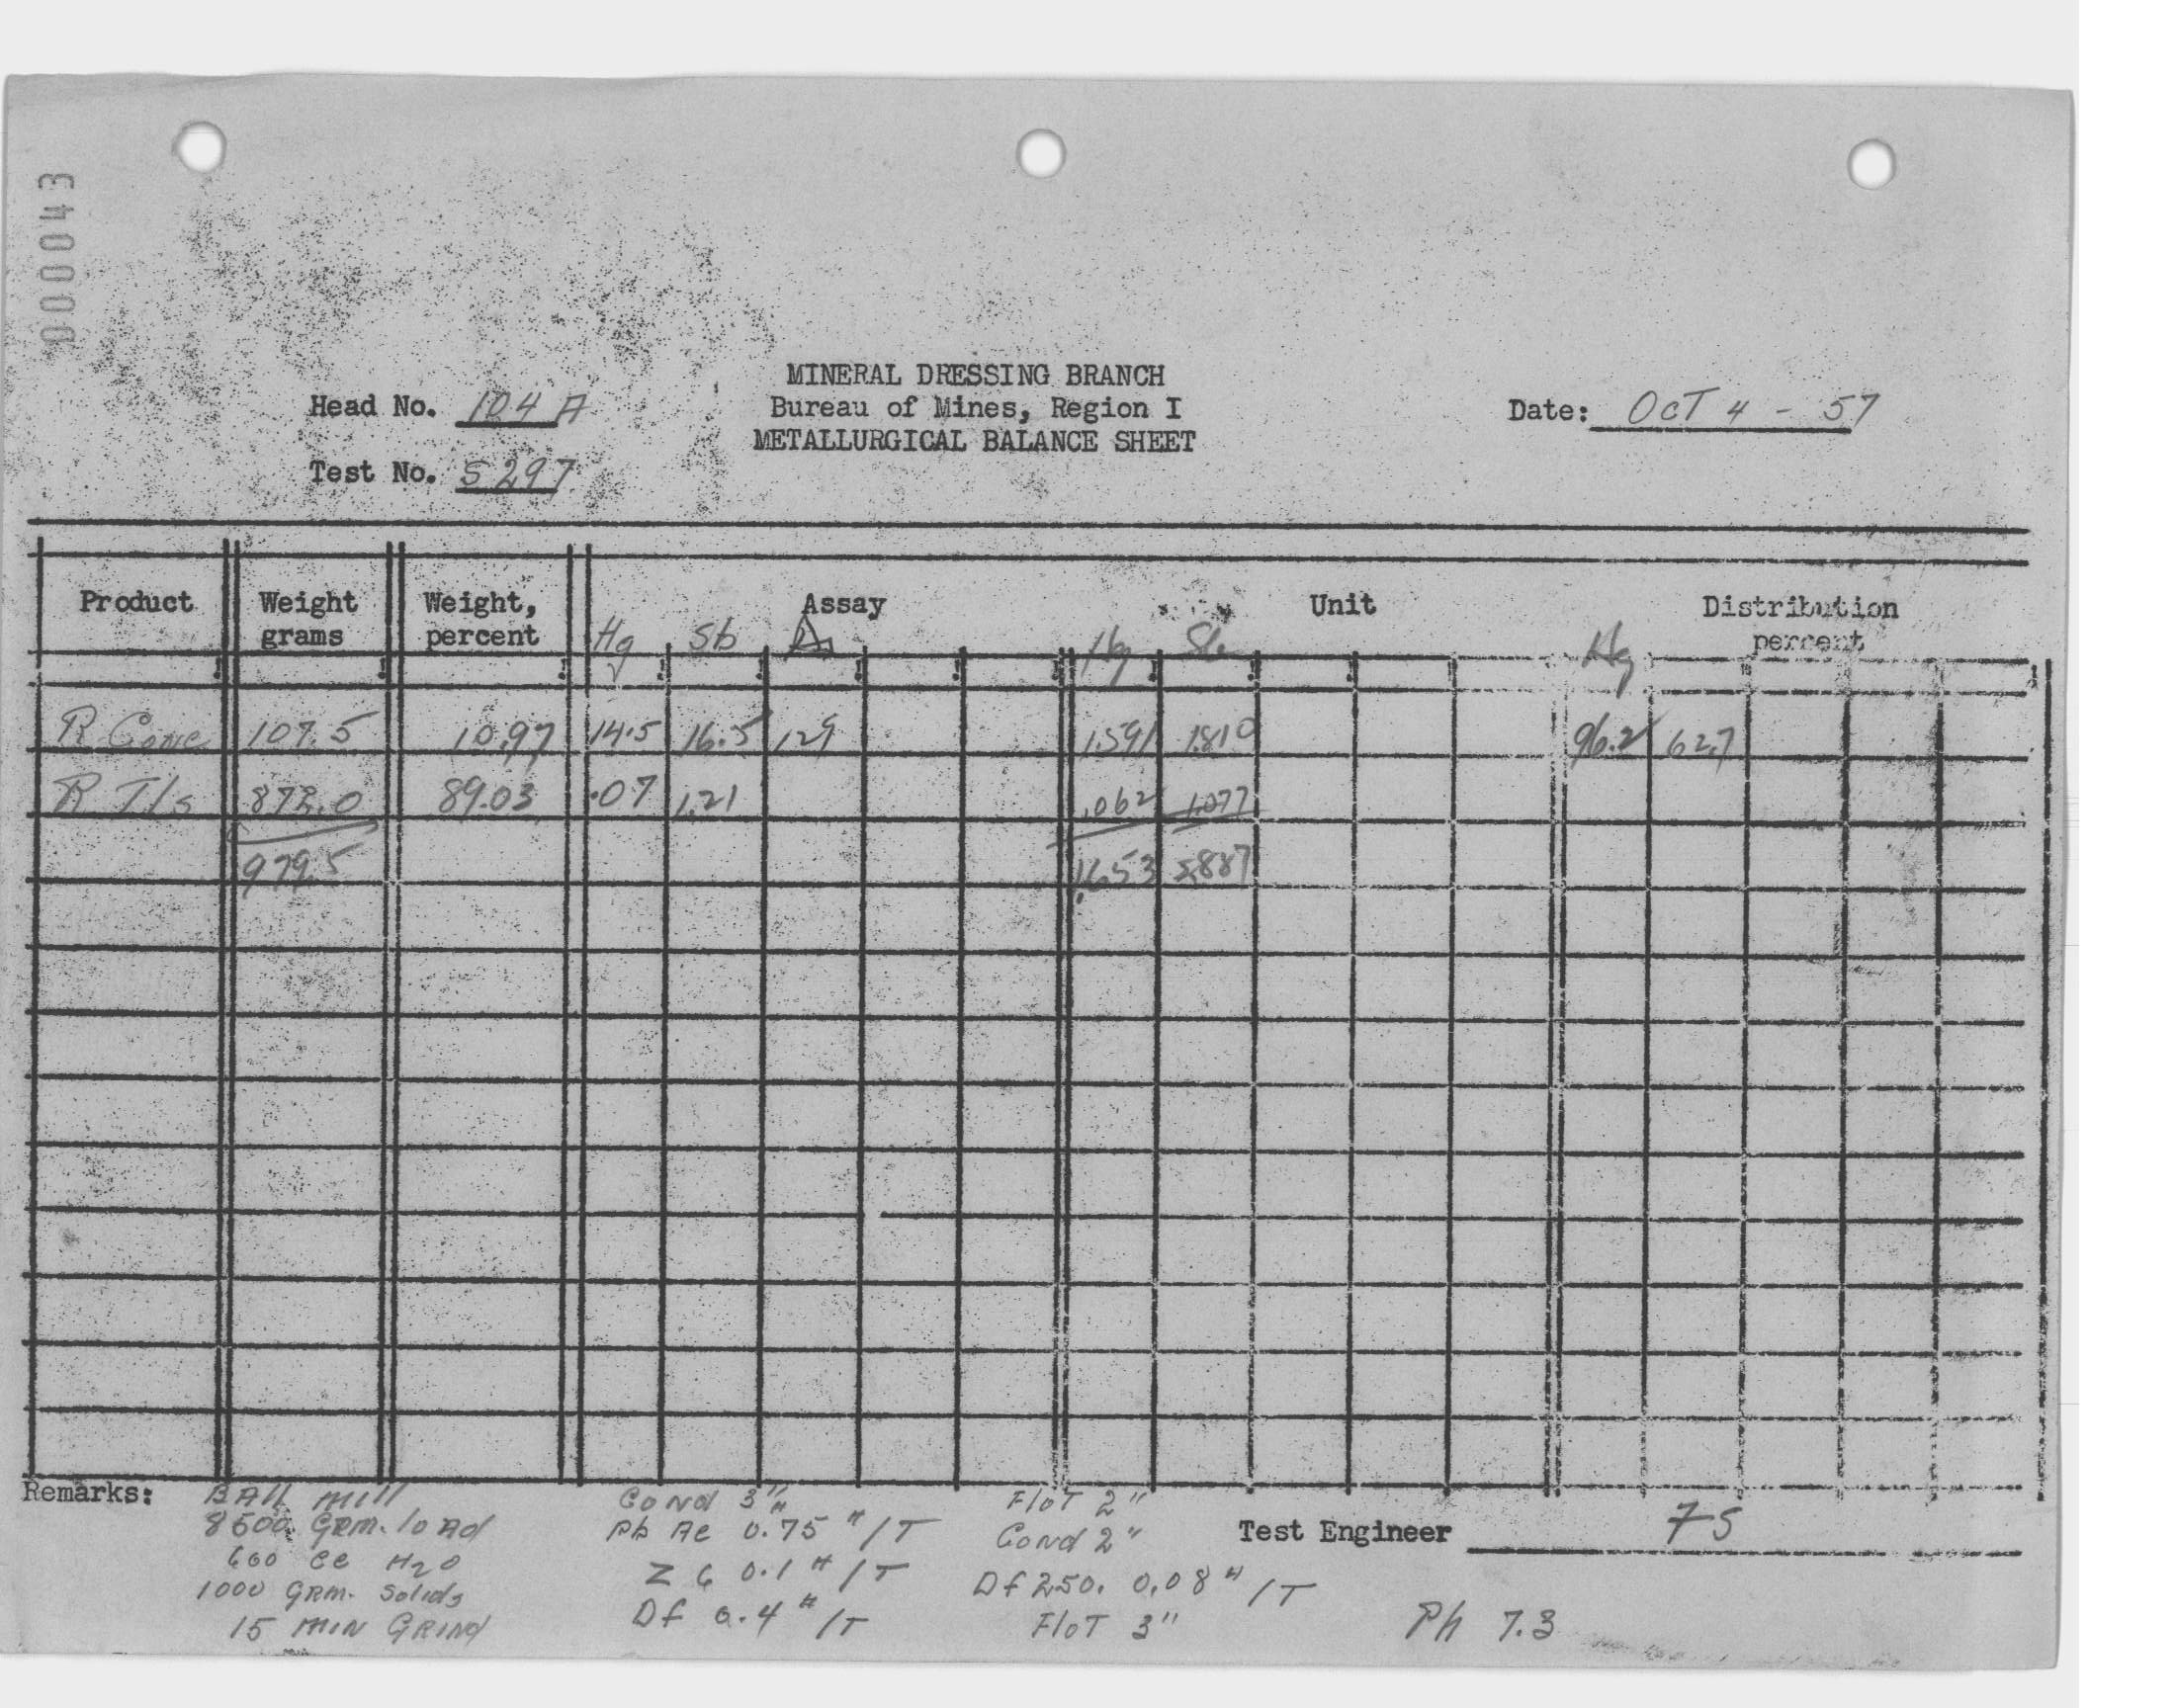 000043
MINERAL DRESSING BRANCH
Head No. 104 A Bureau of Mines, Region I Date: OcT 4 - 57
METALLURGICAL BALANCE SHEET
Test No. S297
Product Weight grams Weight, percent Assay Unit Distribution percent
Hg Sb As Hg Sb Hg
R Conc 107.5 10.97 14.5 16.5 .129 1.591 1.810 96.2 62.7
R Tls 872.0 89.03 .07 1.21 .062 1.077
979.5 1.653 2.887
Remarks: BAll mill Cond 3" FloT 2"
8500 GRM. loAd Pb Ac 0.75 #/T Cond 2" Test Engineer
600 cc H2O Z 6 0.1 #/T Df 250. 0.08 #/T
1000 GRM. Solids Df 0.4 #/T FloT 3" Ph 7.3
15 MIN GRIND